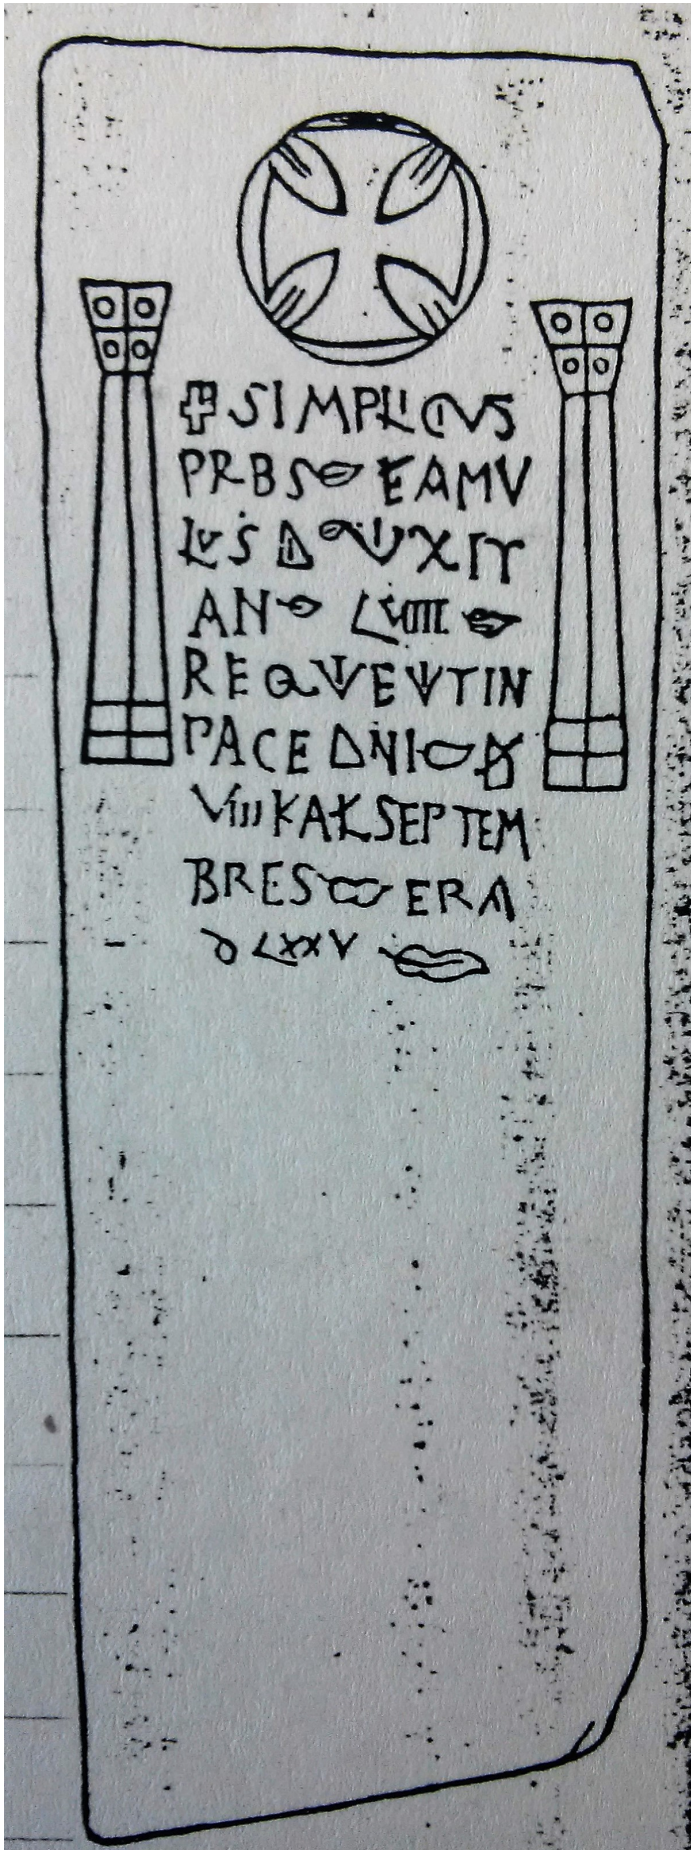 SIMPLICIVS
PRBS FAMV
LVS DI VIXIT
AN LVIIII
REQVIEVITIN
PACE DNI D
VIII KAL SEPTEM
BRES ERA
D LXXV